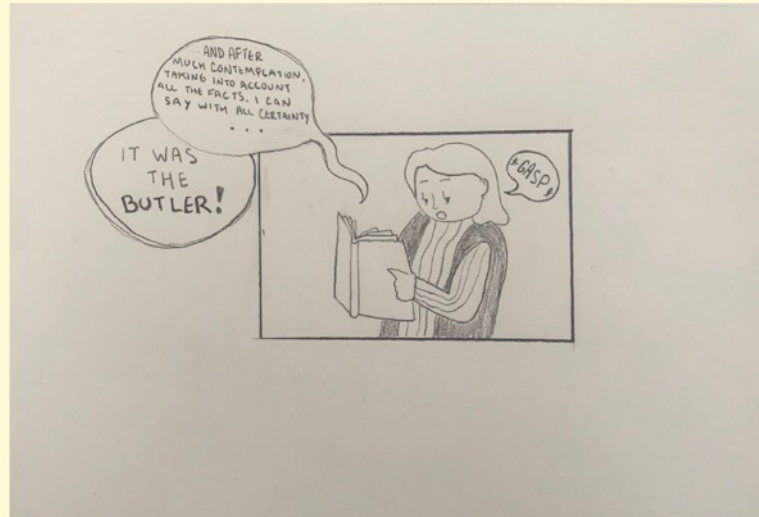 ... AND AFTER
MUCH CONTEMPLATION,
TAKING INTO ACCOUNT
ALL THE FACTS, I CAN
SAY WITH ALL CERTAINTY
...
IT WAS
THE
BUTLER!
*GASP*